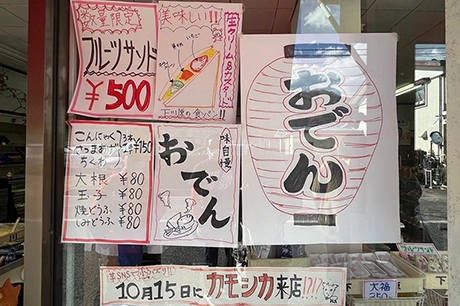 数量限定
フルーツサンド
¥500
美味しい!!
生クリーム&カスタード
いちご
こんにゃく
さつまあげ
ちくわ
3本 ¥150
大根 ¥80
玉子 ¥80
焼どうふ ¥80
しみどうふ ¥80
味自慢
おでん
おでん
10月15日にカモシカ来店!?
フルーツサンド
大福
250